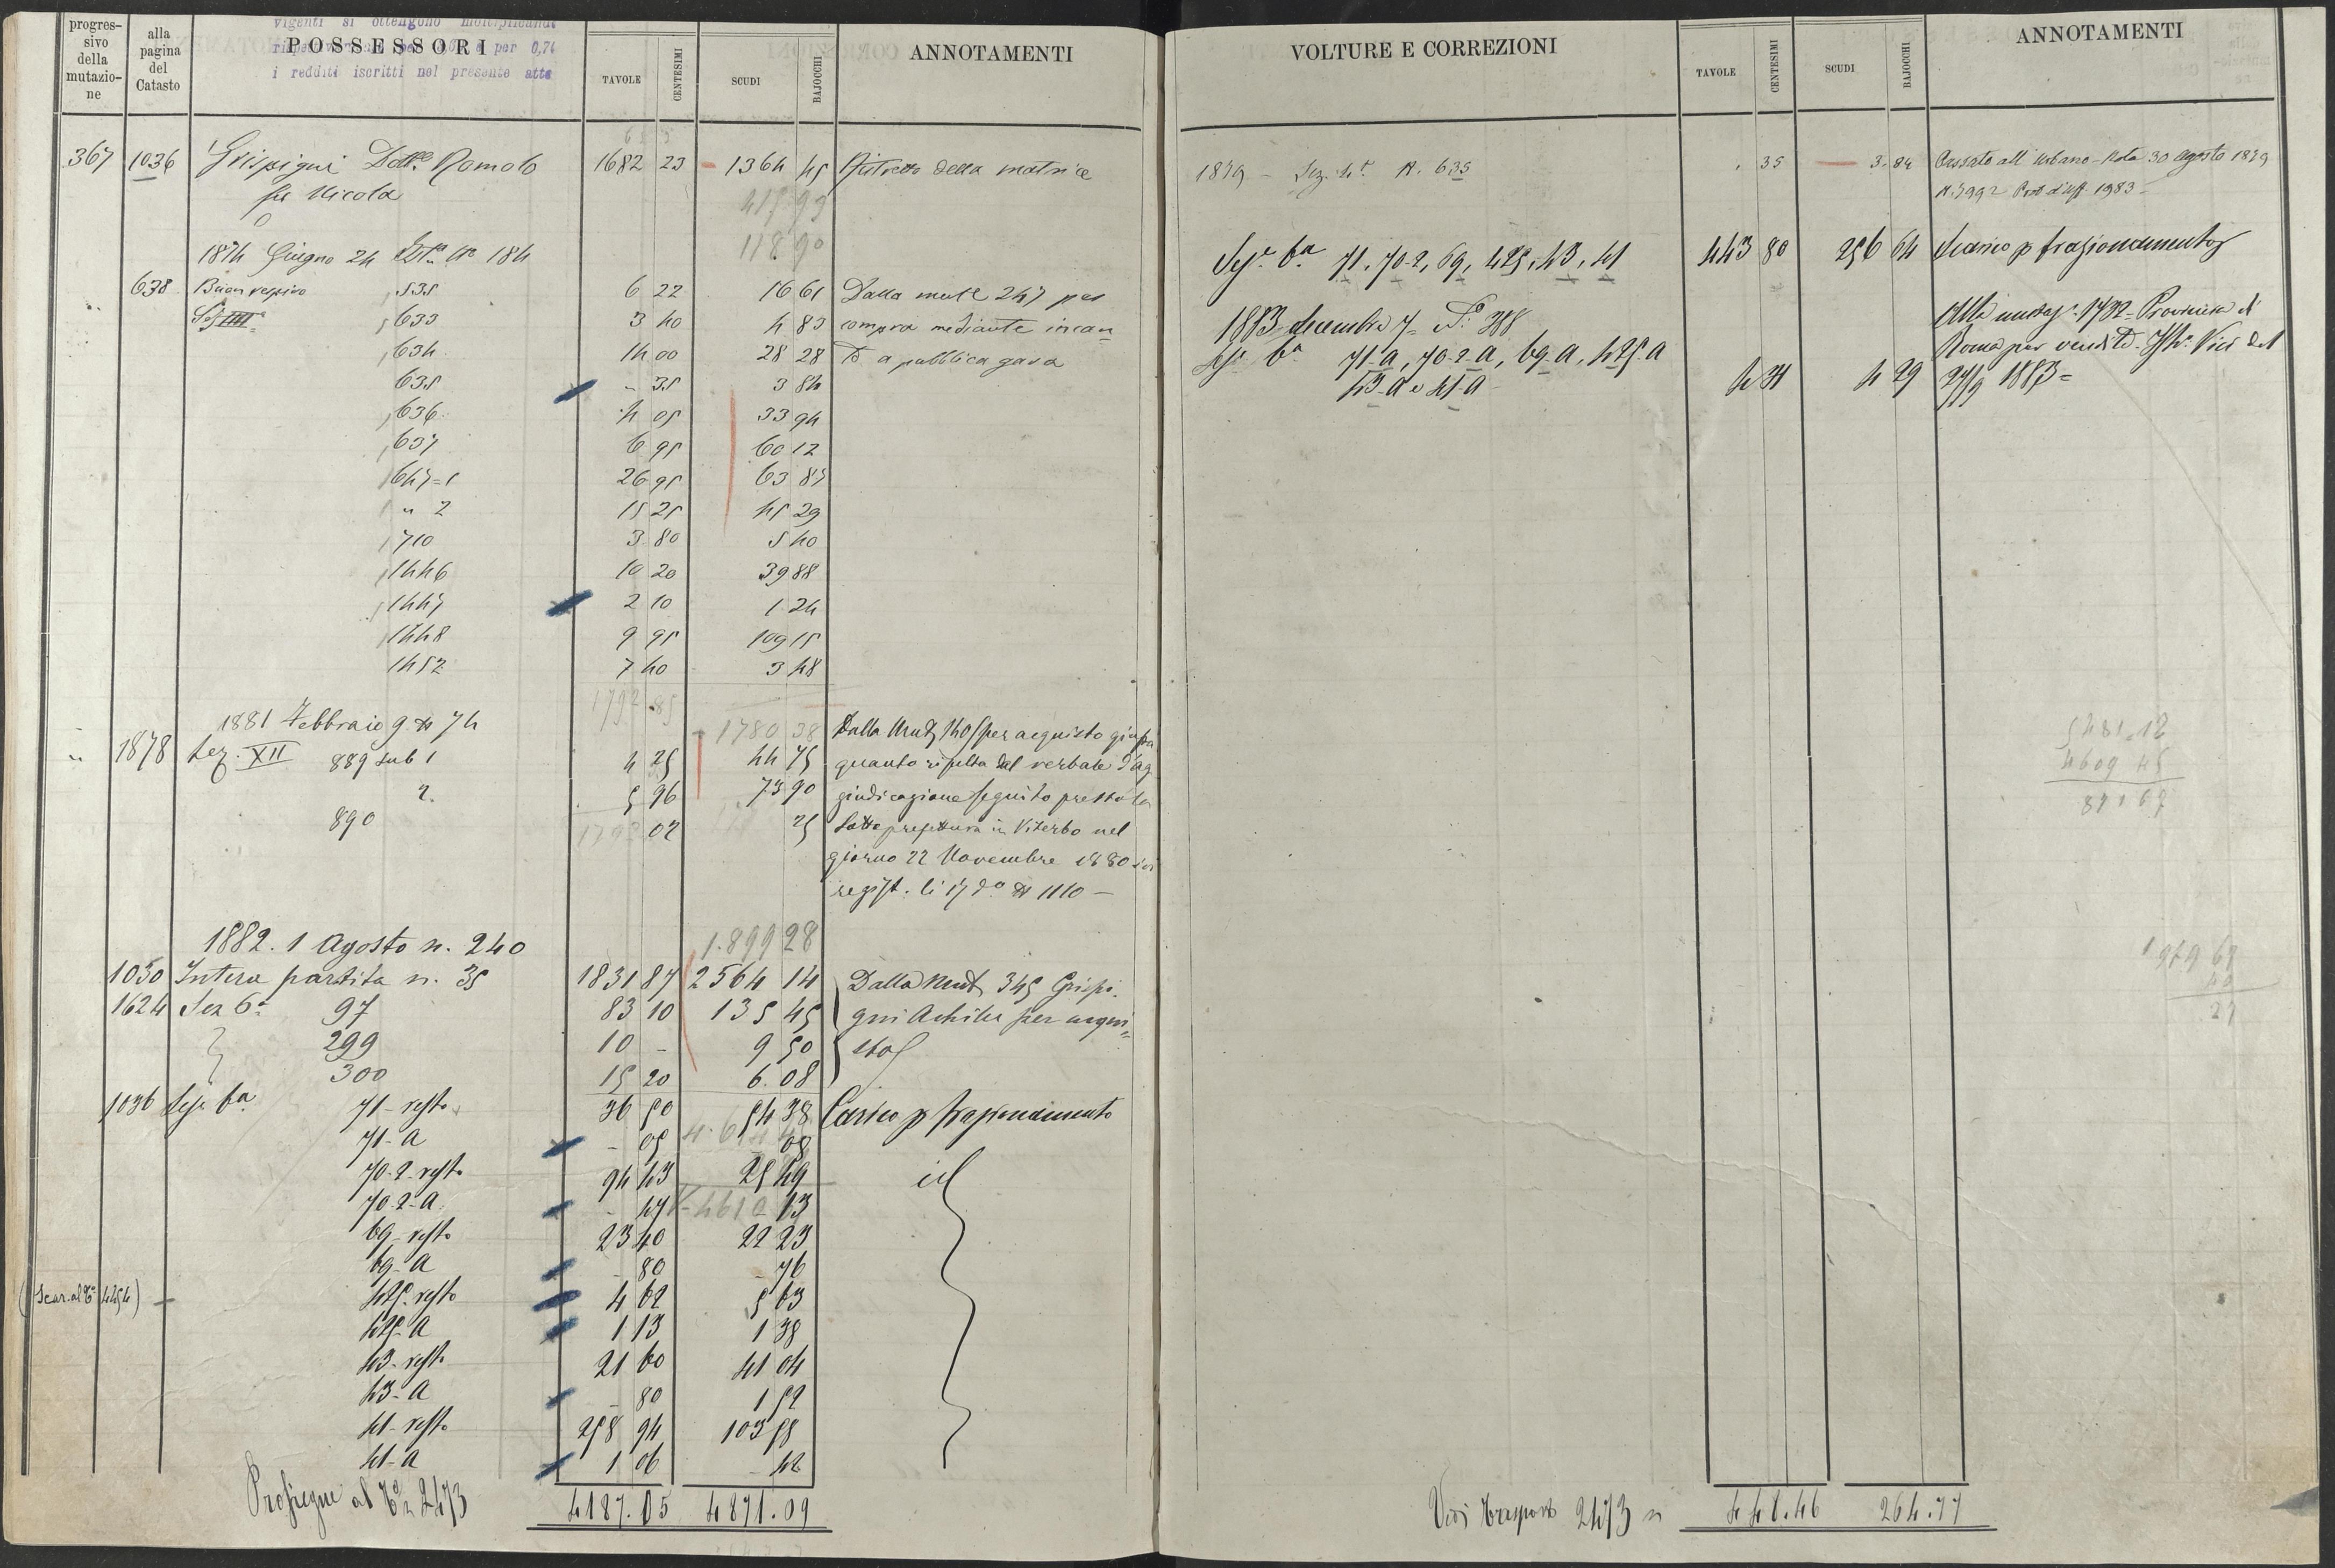 progres-
sivo
della
mutazio-
ne
alla
pagina
del
Catasto
vigenti si ottengono moltiplicand
POSSESSORI per 0,74
i redditi iscritti nel presente atto
TAVOLE
CENTESIMI
SCUDI
BAJOCCHI
ANNOTAMENTI
367 1036 Grispigni Dott.e Romolo 1682 23 1364 45 Ristretto della matrice
fu Nicola 417 93
1874 Giugno 24 118 90
638 535 6 22 16 61 Dalla mut.e 247 per
633 3 40 4 83 compra mediante incan
634 14 00 28 28 to a pubblica gara
635 " 35 3 84
636 4 05 33 94
637 6 95 60 12
647=1 26 95 63 87
" 2 15 25 45 29
710 3 80 5 40
1446 10 20 39 88
1447 2 10 1 24
1448 9 95 109 15
1452 7 40 3 48
1792 85
1881 Febbraio 9 N 74 1780 38 Dalla Mut. 1405 per acquisto giusta
" 1878 Sez. XII 889 sub 1 4 25 44 75 quanto risulta dal verbale d'ag
2. 5 96 73 90 giudicazione seguito presso la
890 02 25 Sotto prefettura in Viterbo nel
giorno 22 Novembre 1880 ivi
regist. li 17 do N 1110 —
1882. 1 Agosto n. 240 1.899 28
1030 Intera partita n. 35 1831 87 2564 14 Dalla Mut. 345 Grispi.
1624 Sez 6a 97 83 10 135 45 gni Achille per acqui=
299 10 - 9 50 sto
300 15 20 6.08
1036 Sez. 6a 71-resto 36 50 54 38 Carico p frazionamento
71-A - 05 - 08
70-2-resto 94 43 25 49 id
70-2-A - 47 - 13
69-resto 23 40 22 23
69-A - 80 - 76
(Scar. al to 4454) 425-resto 4 62 5 63
425-A 1 13 1 38
43-resto 21 60 41 04
43-A - 80 1 52
41-resto 258 94 103 58
41-A 1 06 - 42
Prosiegue al to n 2473 4187.05 4871.09
VOLTURE E CORREZIONI
TAVOLE
CENTESIMI
SCUDI
BAJOCCHI
ANNOTAMENTI
1879 - Sez. N. 635 " 35 3.84 Passato all'Urbano - Nota 30 Agosto 1879
N. 3992 Prot d'uff. 1983 -
Sez. 6a 71, 70-2, 69, 425, 43, 41 443 80 256 64 Scarico p frazionamento
1883 decembre 7 - No 388 Alla mutaz. 1732 - Provincia di
Sez. 6a 71-A, 70-2-A, 69-A, 425-A Roma per vendita - Istr. Vici del
43-A e 41-A 4 31 4 29 27/9 1883 =
5481.12
4609 45
871 67
1979 67
27
Vedi trasporto 2473 448.46 264.77